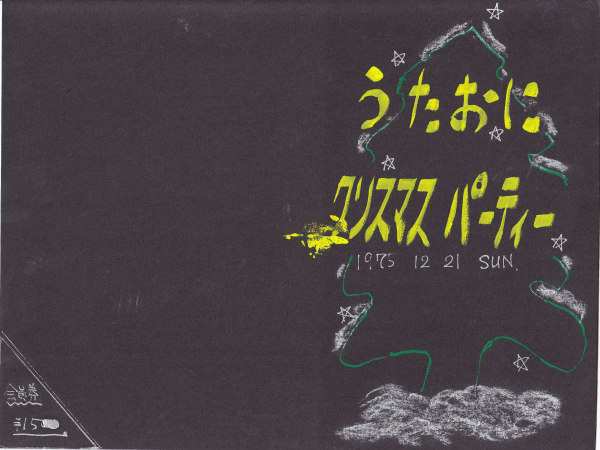 うたおに
クリスマス パーティー
1975 12 21 SUN.